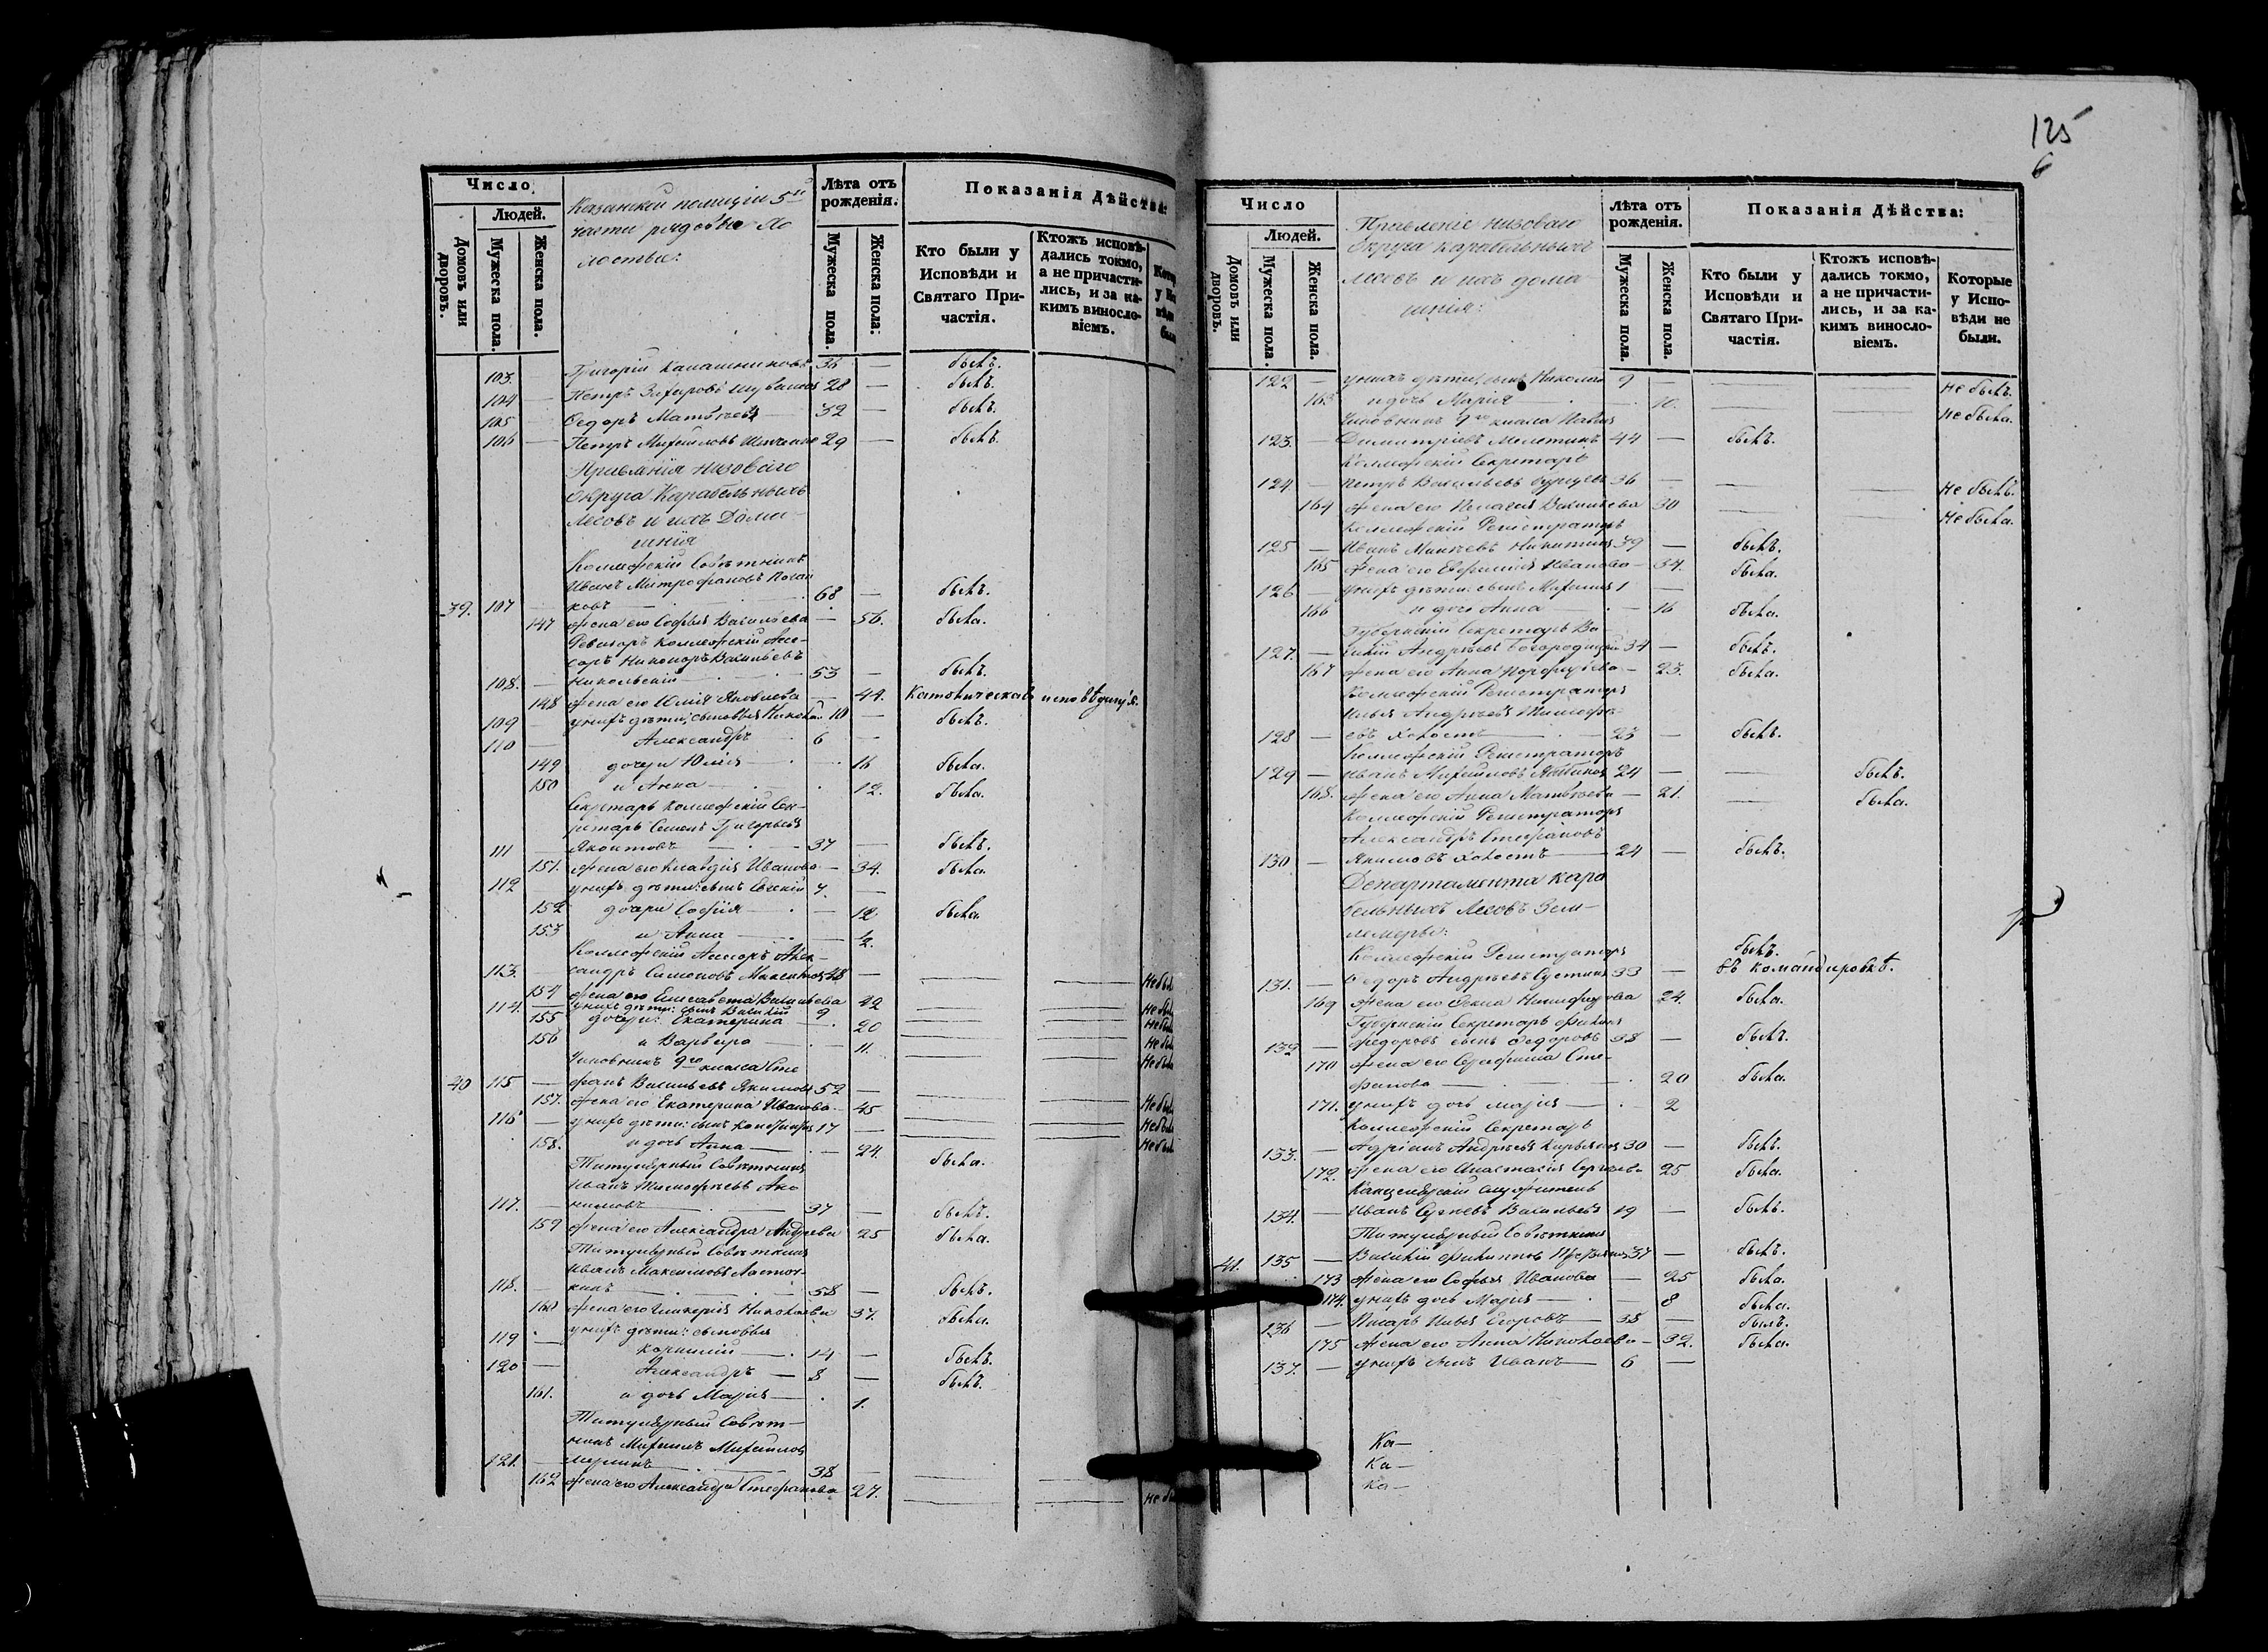 Число
Людей.
Домовъ или дворовъ.
Мужеска пола.
Женска пола.
Казанской полиціи 5й
части рядовые Хо
лостые:
Лѣта отъ рожденія.
Мужеска пола.
Женска пола:
Показанія Дѣйства:
Кто были у Исповѣди и Святаго Причастія.
Ктожъ исповѣдались токмо, а не причастились, и за какимъ винословіемъ.
103. Григорій 36 — былъ.
104 — Петръ 28 — былъ.
105 — Ѳедоръ Матвѣевъ 32 — былъ.
106 — Петръ Михайловъ 29 — былъ.
Правленія низоваго
округа Карабельныхъ
лесовъ и ихъ Дома-
шнія
Коллежскій Совѣтникъ
Иванъ Митрофановъ
39. 107 — ковъ 68 — былъ.
147 жена его Софья Васильева — 56. была.
Ревизоръ Коллежскій Ассе-
соръ Никаноръ Васильевъ
108. — Никольскій 53 — былъ.
148 жена его Юлія Яковлева — 44. Католическаго исповѣданія.
109 — у нихъ дѣти: сыновья Николай 10 — былъ.
110 — Александръ 6 —
149 дочери Юлія — 16 была.
150 и Анна — 12. была.
Секретарь Коллежскій Сек-
ретарь Семенъ Григорьевъ
111 — 37 — былъ.
151. жена его Клавдія Иванова — 34. была.
112 — у нихъ дѣти: сынъ Евгеній 7. —
152 дочери Софія — 12 была.
153 и Анна — 1/2.
Коллежскій Ассесоръ Алек-
113. — сандръ Симоновъ 48 —
154 жена его Елисавета Васильева 42
114. — у нихъ дѣти: сынъ Василій 9
155 дочери: Екатерина — 20
156 и Варвара — 11.
Чиновникъ 9го класса Сте
40 115 — фанъ Васильевъ Якимовъ 52 —
157. жена его Екатерина Иванова — 45
116 — у нихъ дѣти: сынъ 17 —
158. и дочь Анна — 24. была.
Титулярный Совѣтникъ
Иванъ Тимофѣевъ Аки
117. — 37 — былъ.
159 жена его Александра Андреева 25 была.
Титулярный Совѣтникъ
Иванъ Максимовъ Ласточ-
118. — кинъ 58 — былъ.
160 жена его Гликерія Николаева 37. была.
у нихъ дѣти: сыновья
119 — Корнилій — 14 — былъ.
120 — Александръ — 8 — былъ.
161. и дочь Марія — 1.
Титулярный Совѣт-
никъ Михаилъ Михайловъ
121. — 38 —
162 жена его Александра Стефанова 27.
125
6
Число
Людей.
Домовъ или дворовъ.
Мужеска пола.
Женска пола.
Правленіе низоваго
округа карабельныхъ
лесовъ и ихъ дома
шнія:
Лѣта отъ рожденія.
Мужеска пола.
Женска пола.
Показанія Дѣйства:
Кто были у Исповѣди и Святаго Причастія.
Ктожъ исповѣдались токмо, а не причастились, и за какимъ винословіемъ.
Которые у Исповѣди не были.
122 — у нихъ дѣти: сынъ Николай 9 — не былъ.
163 и дочь Марія — 10. не была.
Чиновникъ 9го класса
123. — Димитріевъ 44 — былъ.
Коллежскій Секретарь
124. — Петръ Васильевъ 36 — не былъ.
164 жена его Пелагея Васильева 30 не была.
Коллежскій Регистраторъ
125 — Иванъ Никитинъ 39 — былъ.
165 жена его Евфимія Иванова — 34. была.
126 — у нихъ дѣти: сынъ Михаилъ 1 —
166 и дочь Анна — 16 была.
Губернскій Секретарь Ва-
127. — силій Андрѣевъ Богородицкій 34 — былъ.
167 жена его Анна Порфирьева — 23. была.
Коллежскій Регистраторъ
Илья Андрѣевъ Тимофе-
128 — евъ холостъ — 23 — былъ.
Коллежскій Регистраторъ
129 — Иванъ Михайловъ 24 — былъ.
168. жена его Анна Матвѣева — 21. была.
Коллежскій Регистраторъ
Александръ Стефановъ
130 — Якимовъ холостъ — 24 — былъ.
Департамента кара
бельныхъ лесовъ Зем-
лемеры:
Коллежскій Регистраторъ былъ.
131. — Ѳедоръ Андрѣевъ 33 — въ командировкѣ.
169 жена его 24. была.
Губернскій Секретарь
132 — Ѳедоровъ сынъ Ѳедоровъ 38 — былъ.
170 жена его Серафима Сте-
фанова — 20 была.
171. у нихъ дочь Марія — 2
Коллежскій Секретарь
133. — Адріанъ Андрѣевъ 30 — былъ.
172. жена его Анастасія 25 была.
Канцелярскій служитель
134. — Иванъ Васильевъ 19 — былъ.
Титулярный Совѣтникъ
41. 135 — Василій Филиповъ 37 — былъ.
173 жена его Софья Иванова — 25 была.
174. у нихъ дочь Марія — 8 была.
136 — Писарь Илья Егоровъ — 38 — былъ.
175 жена его Анна Николаева — 32. была.
137. — у нихъ сынъ Иванъ — 6 —
Ка—
Ка—
Ка—